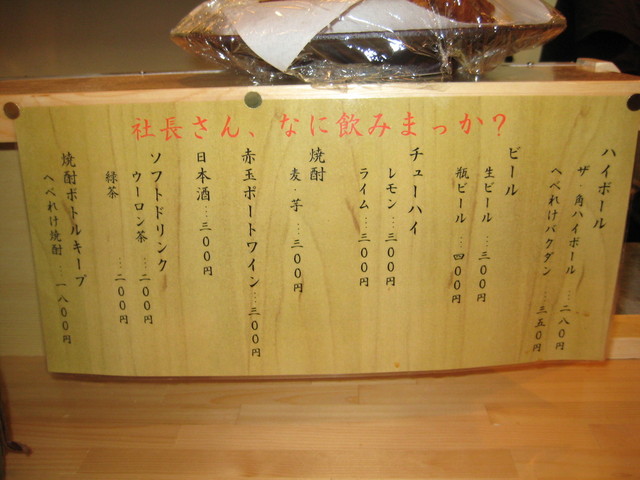 社長さん、なに飲みまっか？
ハイボール
ザ・角ハイボール … 二八〇円
へべれけバクダン … 三五〇円
ビール
生ビール … 三〇〇円
瓶ビール … 四〇〇円
チューハイ
レモン … 三〇〇円
ライム … 三〇〇円
焼酎
麦・芋 … 三〇〇円
赤玉ポートワイン … 三〇〇円
日本酒 … 三〇〇円
ソフトドリンク
ウーロン茶 … 二〇〇円
緑茶 … 二〇〇円
焼酎ボトルキープ
へべれけ焼酎 … 一八〇〇円